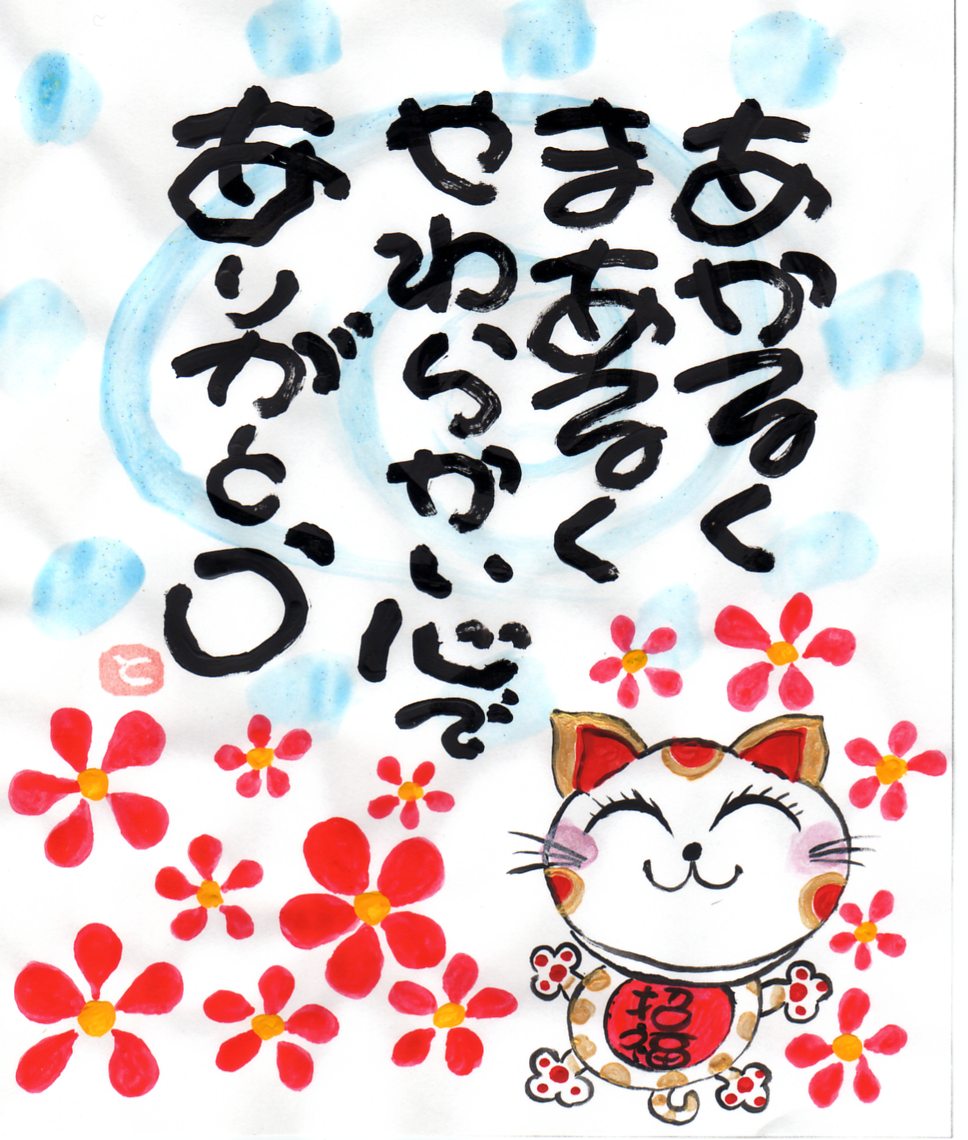 あかるく
まあるく
やわらかい心で
ありがとう
と
招福